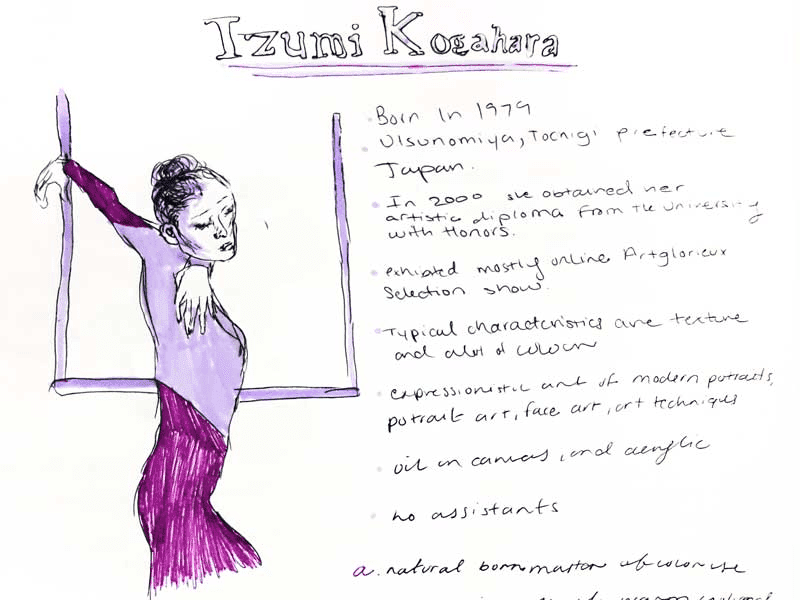 Izumi Kogahara
Born In 1979
Utsunomiya, Tochigi prefecture
Japan.
In 2000 she obtained her
artistic diploma from the university
with Honors.
exhiated mostly online Artglorieux
Selection show.
Typical characteristics are texture
and alot of colour
expressionistic art of modern potraits,
potrait art, face art, art techniques
oil on canvas, and acrylic
no assistants
a. natural born master of color use